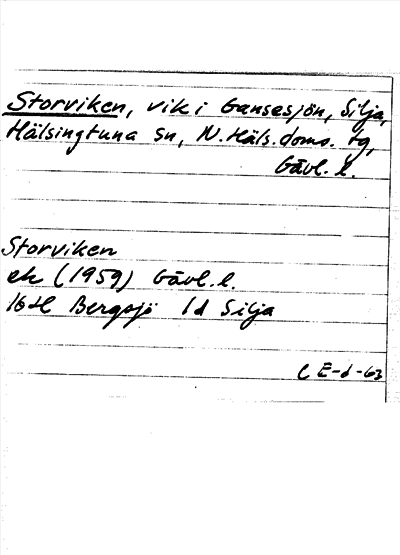 Storviken, vik i Gansesjön, Silja,
Hälsingtuna sn, N. Häls. doms. tg,
Gävl. l.
Storviken
ek (1959) Gävl. l.
16H Bergsjö 1d Silja
E-d-63